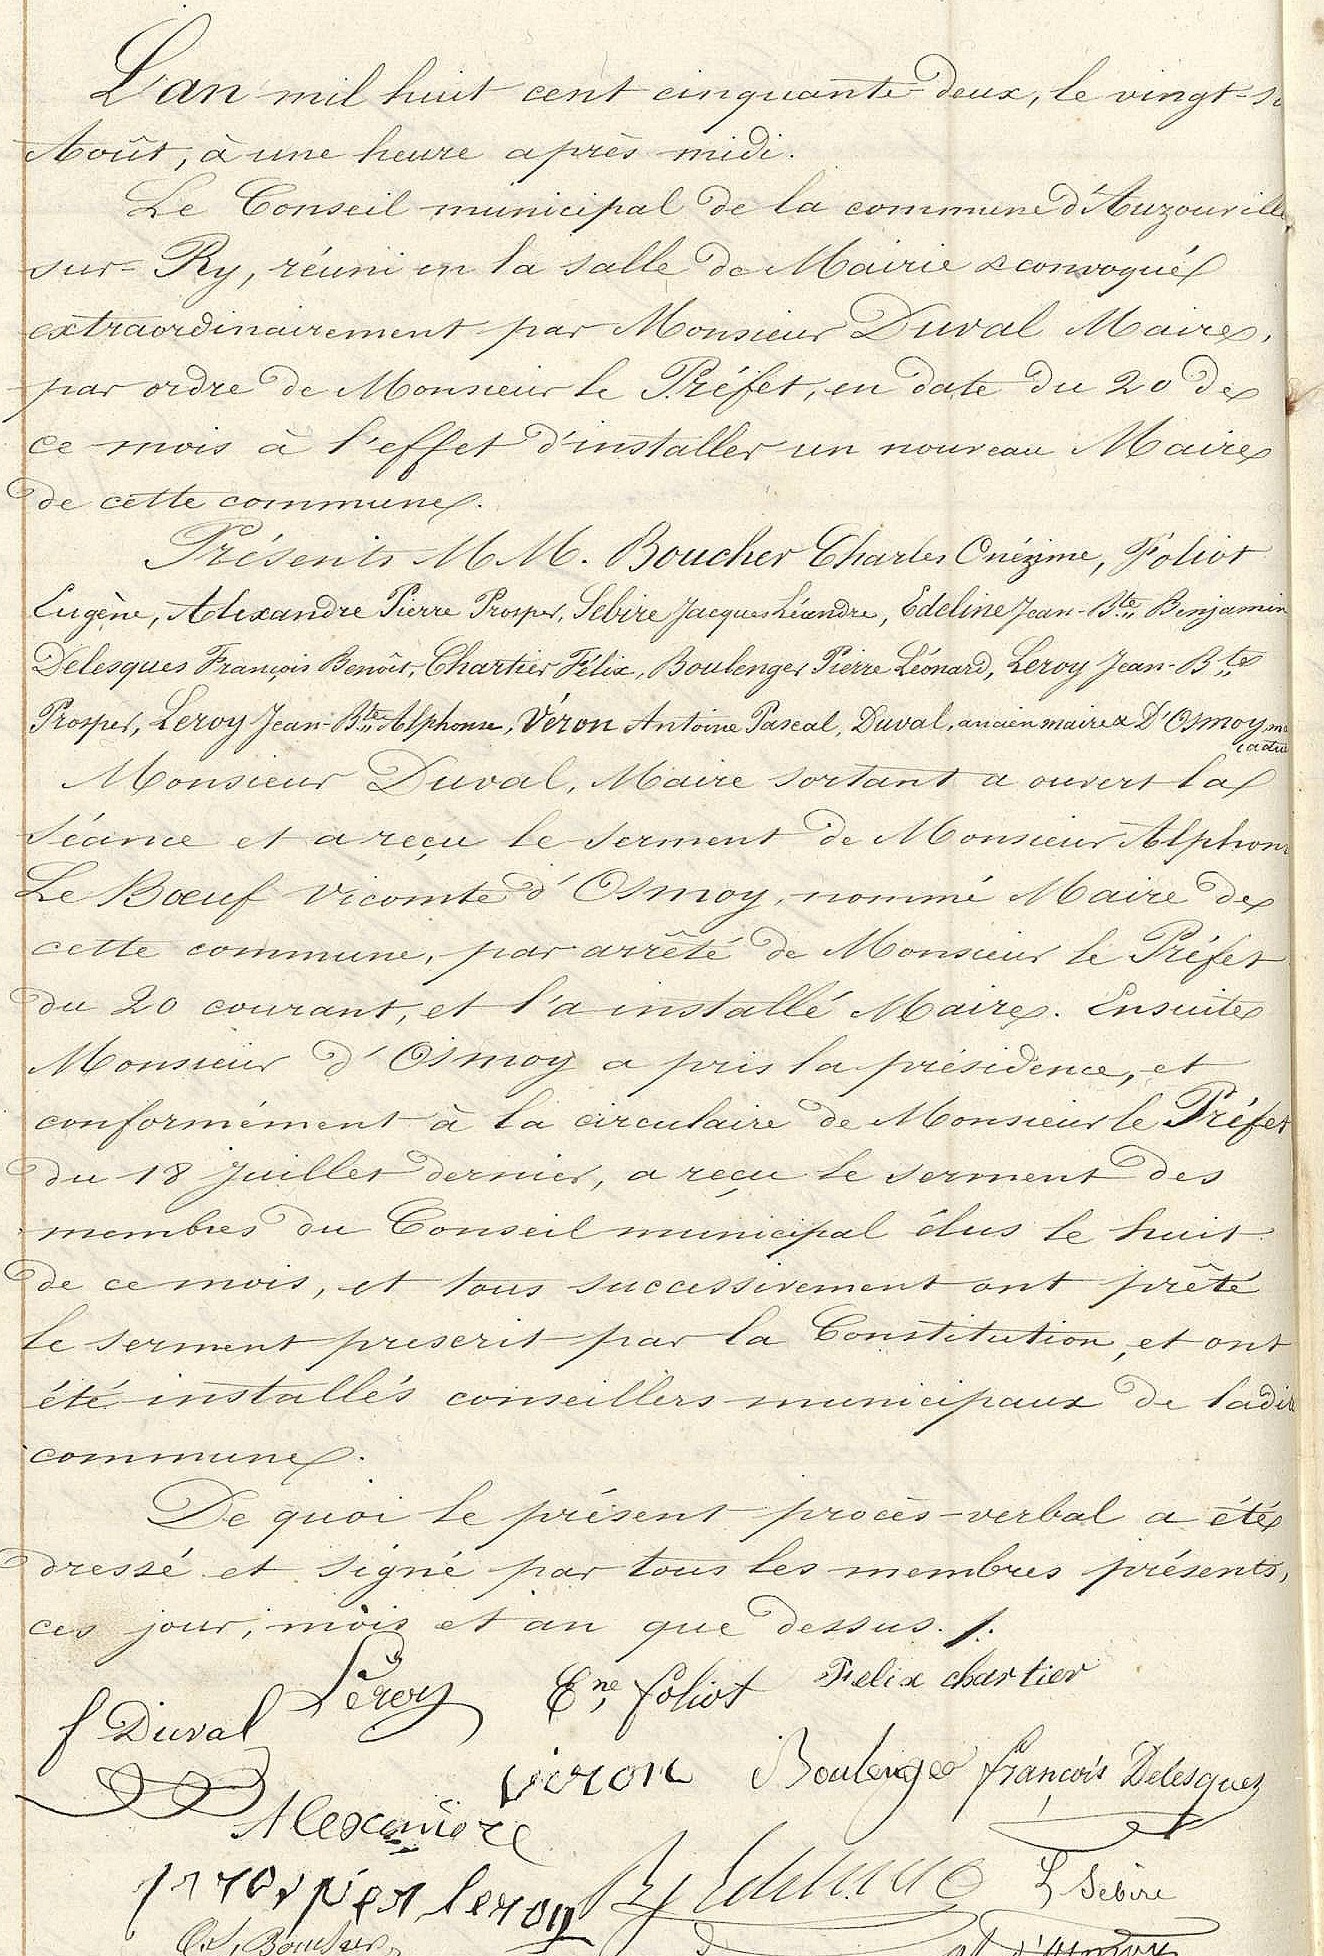 L'an mil huit cent cinquante-deux, le vingt-
Août, à une heure après midi.
Le Conseil municipal de la commune d'Auzouville
sur-Ry, réuni en la salle de Mairie & convoqué
extraordinairement par Monsieur Duval Maire,
par ordre de Monsieur le Préfet, en date du 20 de
ce mois à l'effet d'installer un nouveau Maire
de cette commune.
Présents MM. Boucher Charles Onézime, Foliot
Eugène, Alexandre Pierre Prosper, Sebire Jacques Léandre, Edeline Jean-Bte Benjamin
Delesques François Benoît, Chartier Félix, Boulenger Pierre Léonard, Leroy Jean-Bte
Prosper, Leroy Jean-Bte Alphonse, Véron Antoine Pascal, Duval, ancien maire & D'Osmoy,
Monsieur Duval, Maire sortant a ouvert la
séance et a reçu le serment de Monsieur Alphon
Le Bœuf Vicomte d'Osmoy, nommé Maire de
cette commune, par arrêté de Monsieur le Préfet
du 20 courant, et l'a installé Maire. Ensuite
Monsieur d'Osmoy a pris la présidence, et
conformément à la circulaire de Monsieur le Préfet
du 18 Juillet dernier, a reçu le serment des
membres du Conseil municipal élus le huit
de ce mois, et tous successivement ont prêté
le serment prescrit par la Constitution, et ont
été installés conseillers municipaux de ladi
commune.
De quoi le présent procès-verbal a été
dressé et signé par tous les membres présents,
ces jour, mois et an que dessus./.
Leroy Ene foliot Felix chartier
f Duval
veron Boulenger françois Delesques
Alexandre
prosper leroy Bj Edeline L Sebire
Boucher d'Osmoy